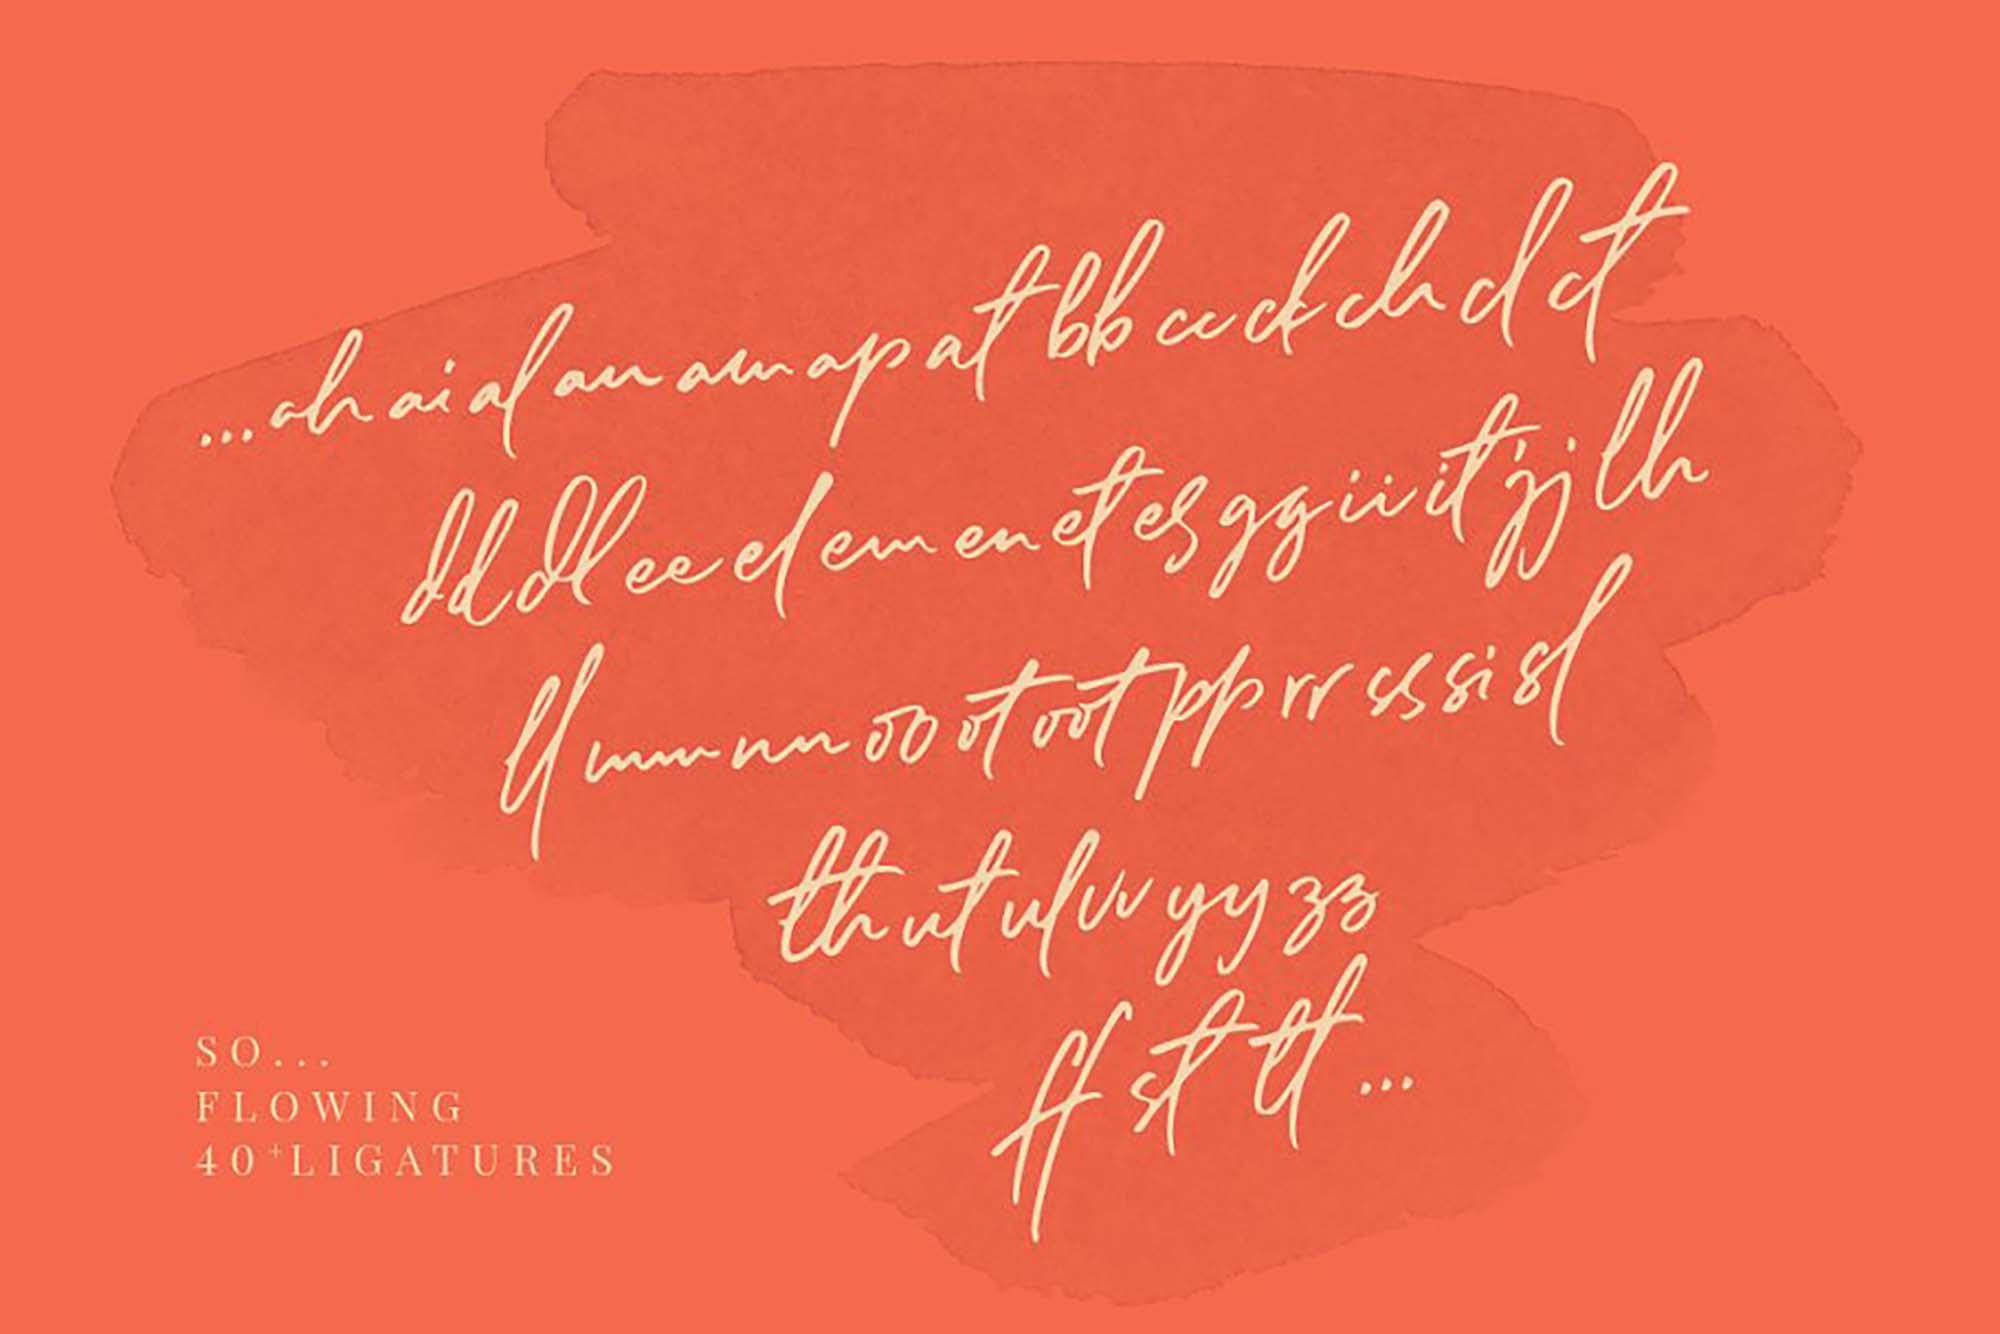 ...ah ai al an am ap at bb cc ck ch cl ct
dd dl ee el em en et es gg ii it jj lh
ll mm nn oo ot oot pp rr ss si sl
th ut ul vv yy zz
ff st tt ...
SO...
FLOWING
40+LIGATURES